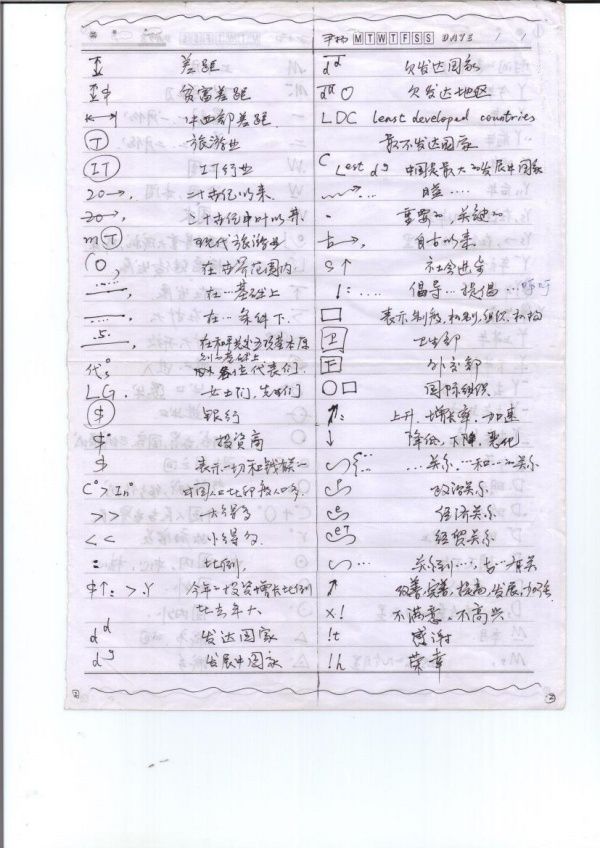 M T W T F S S DATE / /
差距
$ 贫富差距
中西部差距
T 旅游业
IT IT行业
20→, 二十世纪以来
20→, 二十世纪中叶以来
m T 现代旅游业
在世界范围内
在…基础上
在…条件下
.5. 在和平共处五项基本原则的基础上
代 各位代表们
LG. 女士们,先生们
$ 银行
$° 投资商
$ 表示一切和钱有关
C°>In° 中国人口比印度人口多
>> 大得多
<< 小得多
: 比例
$↑: >.Y 今年的投资增长比例
比去年大
d d 发达国家
d g 发展中国家
d d 欠发达国家
d d ○ 欠发达地区
LDC least developed countries
最不发达国家
C Lest dg 中国是最大的发展中国家
… 随….
重要的,关键的
古→, 自古以来
S↑ 社会进步
: …. 倡导…提倡…呼吁
□ 表示制度,机制,组织,机构
卫 卫生部
F 外交部
○□ 国际组织
: 上升,增长率,加速
↓ 降低,下降,恶化
…关系,…和…的关系
P 政治关系
e 经济关系
经贸关系
… 关系到…,与…有关
↗ 改善,完善,提高,发展,加强
×! 不满意,不高兴
!t 感谢
!h 荣幸